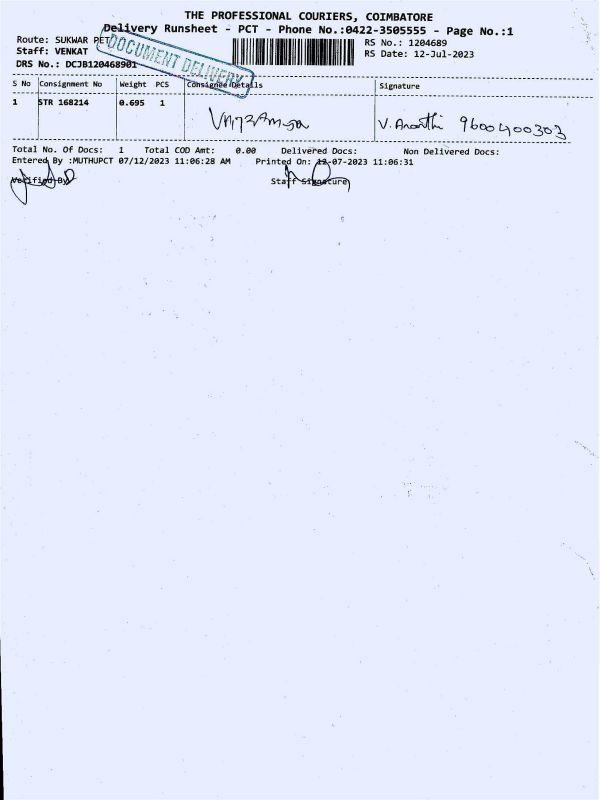 THE PROFESSIONAL COURIERS, COIMBATORE
Delivery Runsheet - PCT - Phone No.:0422-3505555 - Page No.:1
Route: SUKWAR PET
RS No.: 1204689
Staff: VENKAT
RS Date: 12-Jul-2023
DRS No.: DCJB120468901
DOCUMENT DELIVERY
S No Consignment No Weight PCS Consignee Details Signature
1 STR 168214 0.695 1 V. Ananthi 9600400303
Total No. Of Docs: 1 Total COD Amt: 0.00 Delivered Docs: Non Delivered Docs:
Entered By :MUTHUPCT 07/12/2023 11:06:28 AM Printed On: 12-07-2023 11:06:31
Verified By Staff Signature